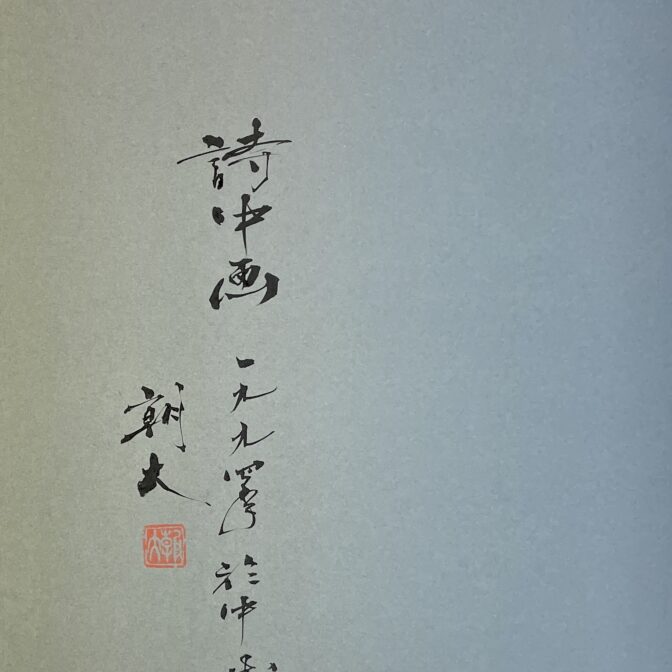 詩中画 一九九四年 於中
朝大